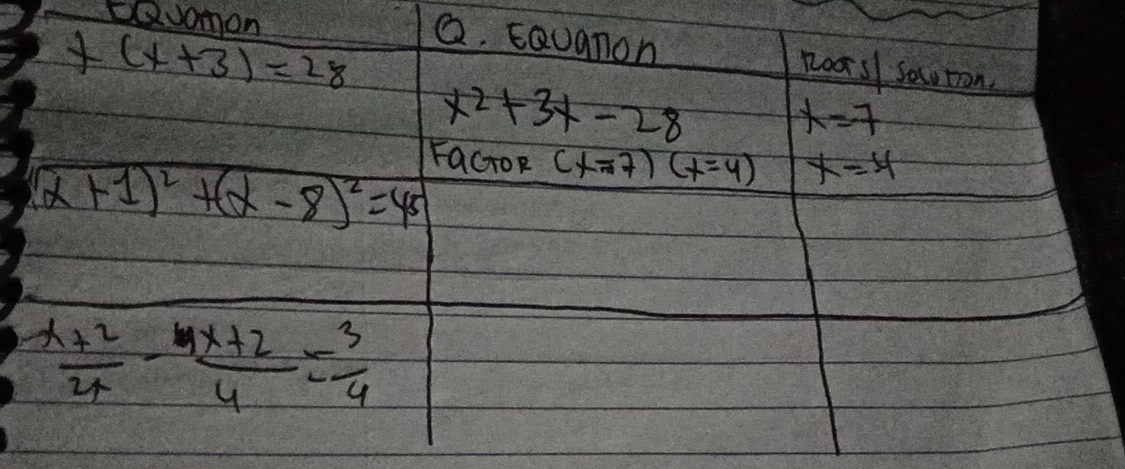 EQuation
Q. EQuation
Roots/ Solution.
x (x+3) = 28
x2 + 3x - 28
x=7
Factor (x=7) (x=4)
x=4
(x+1)² + (x-8)² = 45
x+2/2x - 4x+2/4 = 3/4